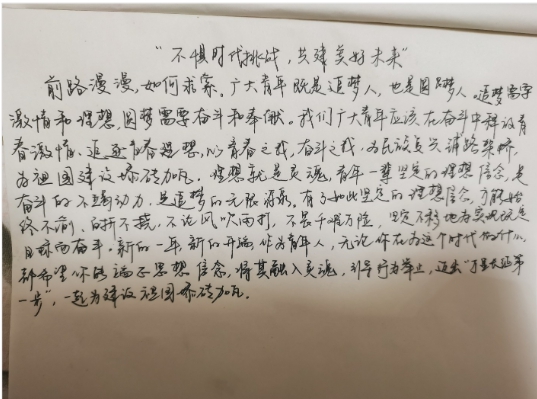 “不惧时代挑战，共建美好未来”
前路漫漫，如何求索。广大青年既是追梦人，也是圆梦人。追梦需要
激情和理想，圆梦需要奋斗和奉献。我们广大青年应该在奋斗中释放青
春激情、追逐青春理想，以青春之我，奋斗之我，为民族复兴铺路架桥，
为祖国建设添砖加瓦。理想就是灵魂，青年一辈坚定的理想信念，是
奋斗的不竭动力，是追梦的无限源泉，有了如此坚定的理想信念，方能始
终不渝，百折不挠，不论风吹雨打，不畏千难万险，坚定不移地为实现既定
目标而奋斗。新的一年，新的开端，作为青年人，无论你在为这个时代做什么，
都希望你能端正思想信念，将其融入灵魂，引导行为举止，迈出“万里长征第
一步”，一起为建设祖国添砖加瓦。